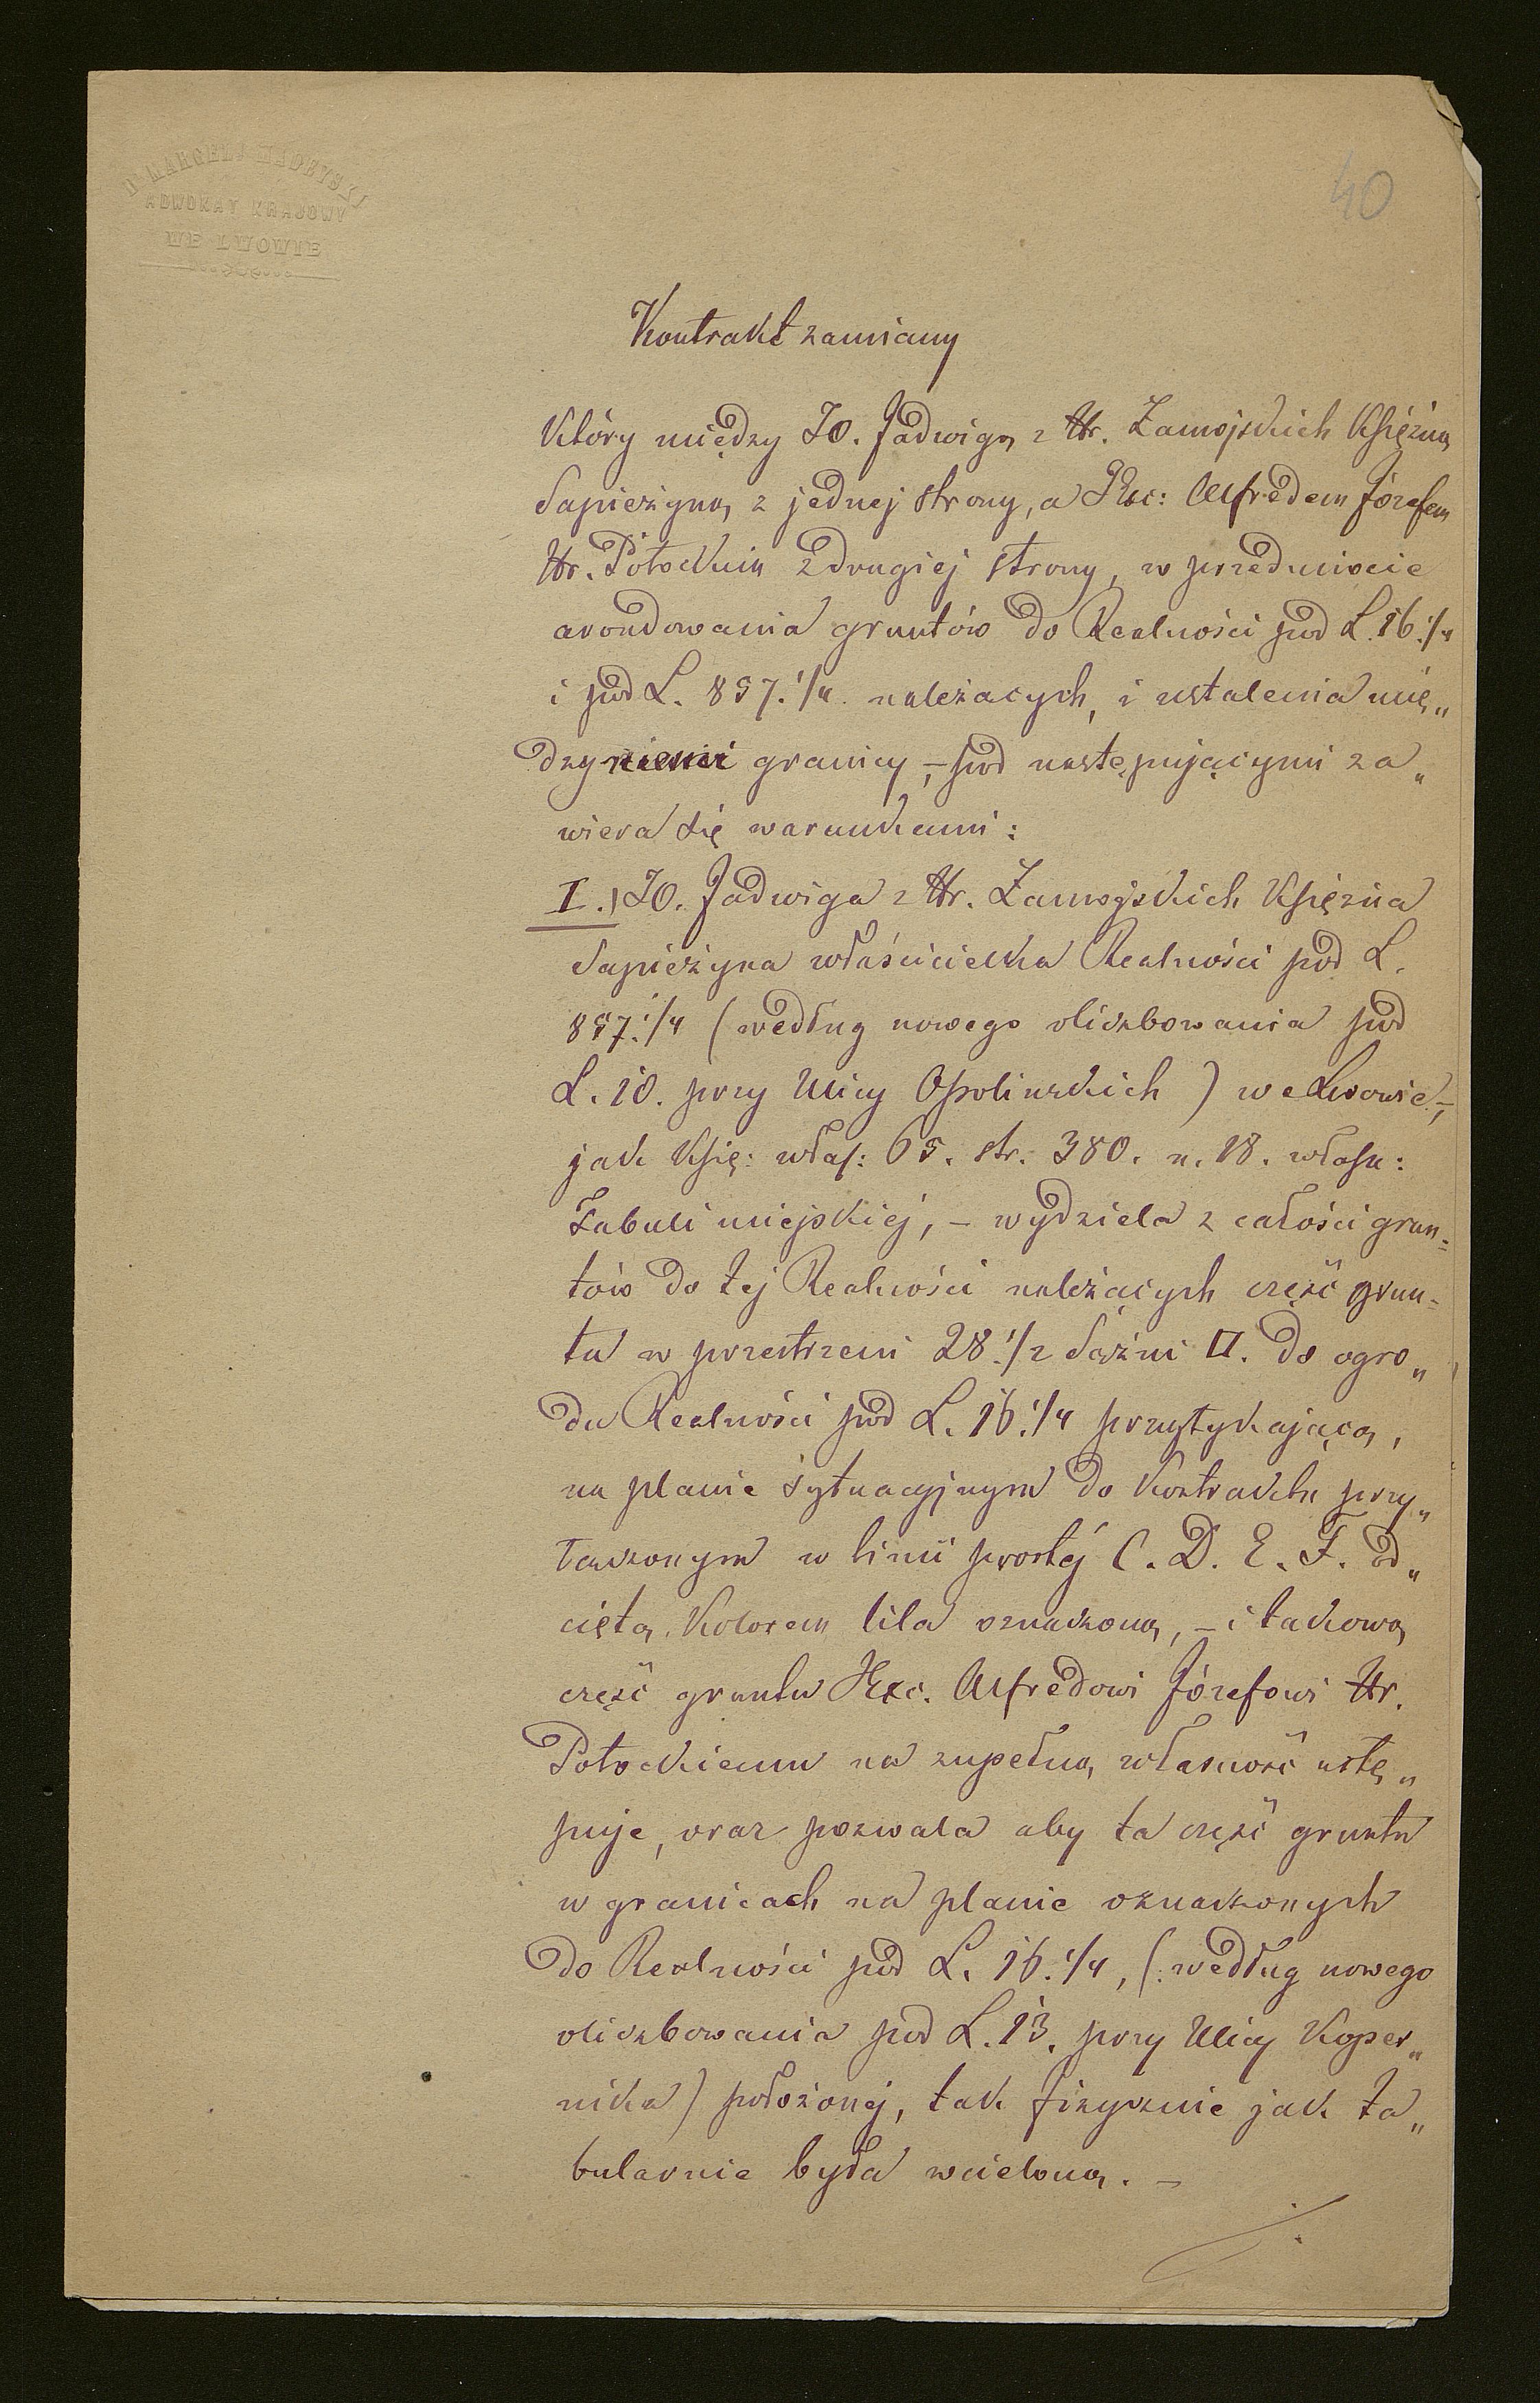 Dr MARCELI MADEYSKI
ADWOKAT KRAJOWY
WE LWOWIE
40
Kontrakt zamiany
Który między JO. Jadwigą z Hr. Zamojskich Księżną
Sapieżyną z jednej strony, a JExc: Alfredem Józefem
Hr. Potockim z drugiej strony, w przedmiocie
arondowania gruntów do Realności pod L. 16.1/4
i pod L. 897.1/4. należacych, i ustalenia mię„
dzy niemi granicy, – pod następującymi za„
wiera się warunkami:
I.) JO. Jadwiga z Hr. Zamojskich Księżna
Sapieżyna właścicielka Realności pod L.
897.1/4 (według nowego oliczbowania pod
L. 10. przy Ulicy Ossolinskich) we Lwowie, –
jak Księ: włas: 65. str. 380. n. 18. własn:
Tabuli miejskiej, – wydziela z całości grun=
tów do tej Realności należących część grun=
tu w przestrzeni 28.1/2 Sążni □. do ogro„
du Realności pod L. 16.1/4 przytykającą,
na planie sytuacyjnym do Kontraktu przy„
łączonym w linii prostéj C. D. E. F. od„
ciętą, Kolorem lila oznaczoną, – i takową
część gruntu JExc. Alfredowi Józefowi Hr.
Potockiemu na zupełną własność ustę„
puje, oraz pozwala aby ta część gruntu
w granicach na planie oznaczonych
do Realności pod L. 16.1/4, (: według nowego
oliczbowania pod L. 13. przy Ulicy Koper„
nika) położonej, tak fizycznie jak ta„
bularnie była wcieloną. –